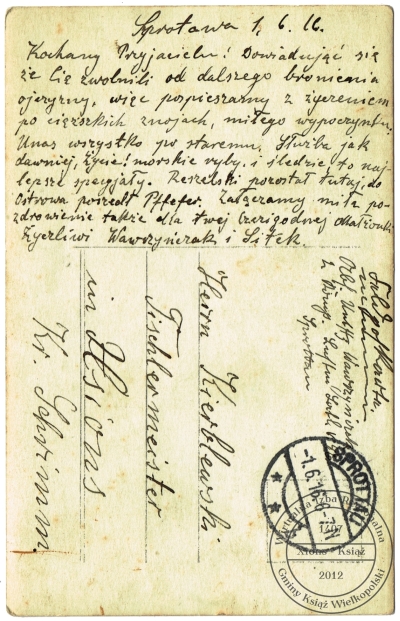 Szprotawa 1. 6. 16.
Kochany Przyjacielu! Dowiadując się
że Cię zwolnili od dalszego bronienia
ojczyzny, więc pospieszamy z życzeniem
po ciężkich znojach, miłego wypoczynku.
U nas wszystko po staremu. Służba jak
dawniej, życie i morskie ryby i śledzie to naj-
lepsze specyjały. Reszelski pozostał tutaj, do
Ostrowa poszedł Pfefer. Załączamy miłe po-
zdrowienie także dla twej Czcigodnej Małżonki
Życzliwi Wawrzyniak i Sitek.
Feldpostkarte
Sprottau
Herrn Kierblewski
Tischlermeister
in Xions
Kr. Schrimm.
SPROTTAU
-1.6.16. 6-7N
Wirtualna Izba Regionalna
1407
Xions - Książ
2012
Gminy Książ Wielkopolski